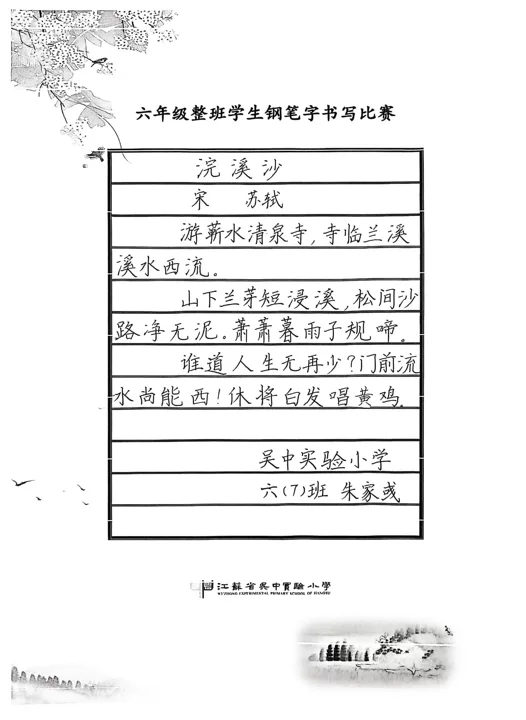 六年级整班学生钢笔字书写比赛
浣溪沙
宋 苏轼
游蕲水清泉寺,寺临兰溪
溪水西流。
山下兰芽短浸溪,松间沙
路净无泥。萧萧暮雨子规啼。
谁道人生无再少?门前流
水尚能西!休将白发唱黄鸡.
吴中实验小学
六(7)班 朱家彧
江蘇省吳中實驗小學
WUZHONG EXPERIMENTAL PRIMARY SCHOOL OF JIANGSU